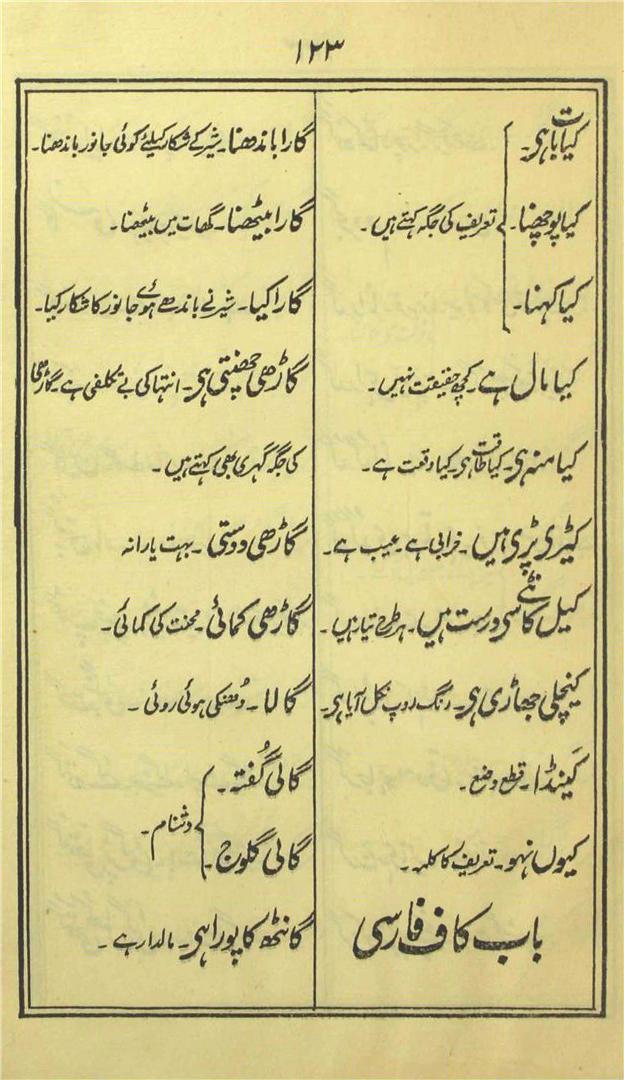 ۱۲۳
کیا بات ہی۔
کیا پوچھنا۔ تعریف کی جگہ کہتے ہیں۔
کیا کہنا۔
کیا مال ہے۔ کچھ حقیقت نہیں۔
کیا منہ ہی۔ کیا طاقت ہی۔ کیا وقعت ہے۔
کیڑی پڑی ہیں۔ خرابی ہے۔ عیب ہے۔
کیل کانٹے سی درست ہیں۔ ہر طرح تیار ہیں۔
کینچلی جھاڑی ہی۔ رنگ روپ نکل آیا ہی۔
کَینڈا۔ قطع وضع۔
کیوں نہو۔ تعریف کا کلمہ۔
باب کاف فارسی
گارا باندھنا۔ شیر کے شکار کیلئے کوئی جانور باندھنا۔
گارا بیٹھنا۔ گھات میں بیٹھنا۔
گارا کیا۔ شیر نے باندھے ہوئے جانور کا شکار کیا۔
گاڑھی چھنتی ہی۔ انتہا کی بے تکلفی ہے۔ گاڑھی
کی جگہ گہری بھی کہتے ہیں۔
گاڑھی دوستی۔ بہت یارانہ
گاڑھی کمائی۔ محنت کی کمائی۔
گالا۔ دُھنکی ہوئی روئی۔
گالی گُفتہ۔
دشنام۔
گالی گلوج۔
گانٹھ کا پورا ہی۔ مالدار ہے۔